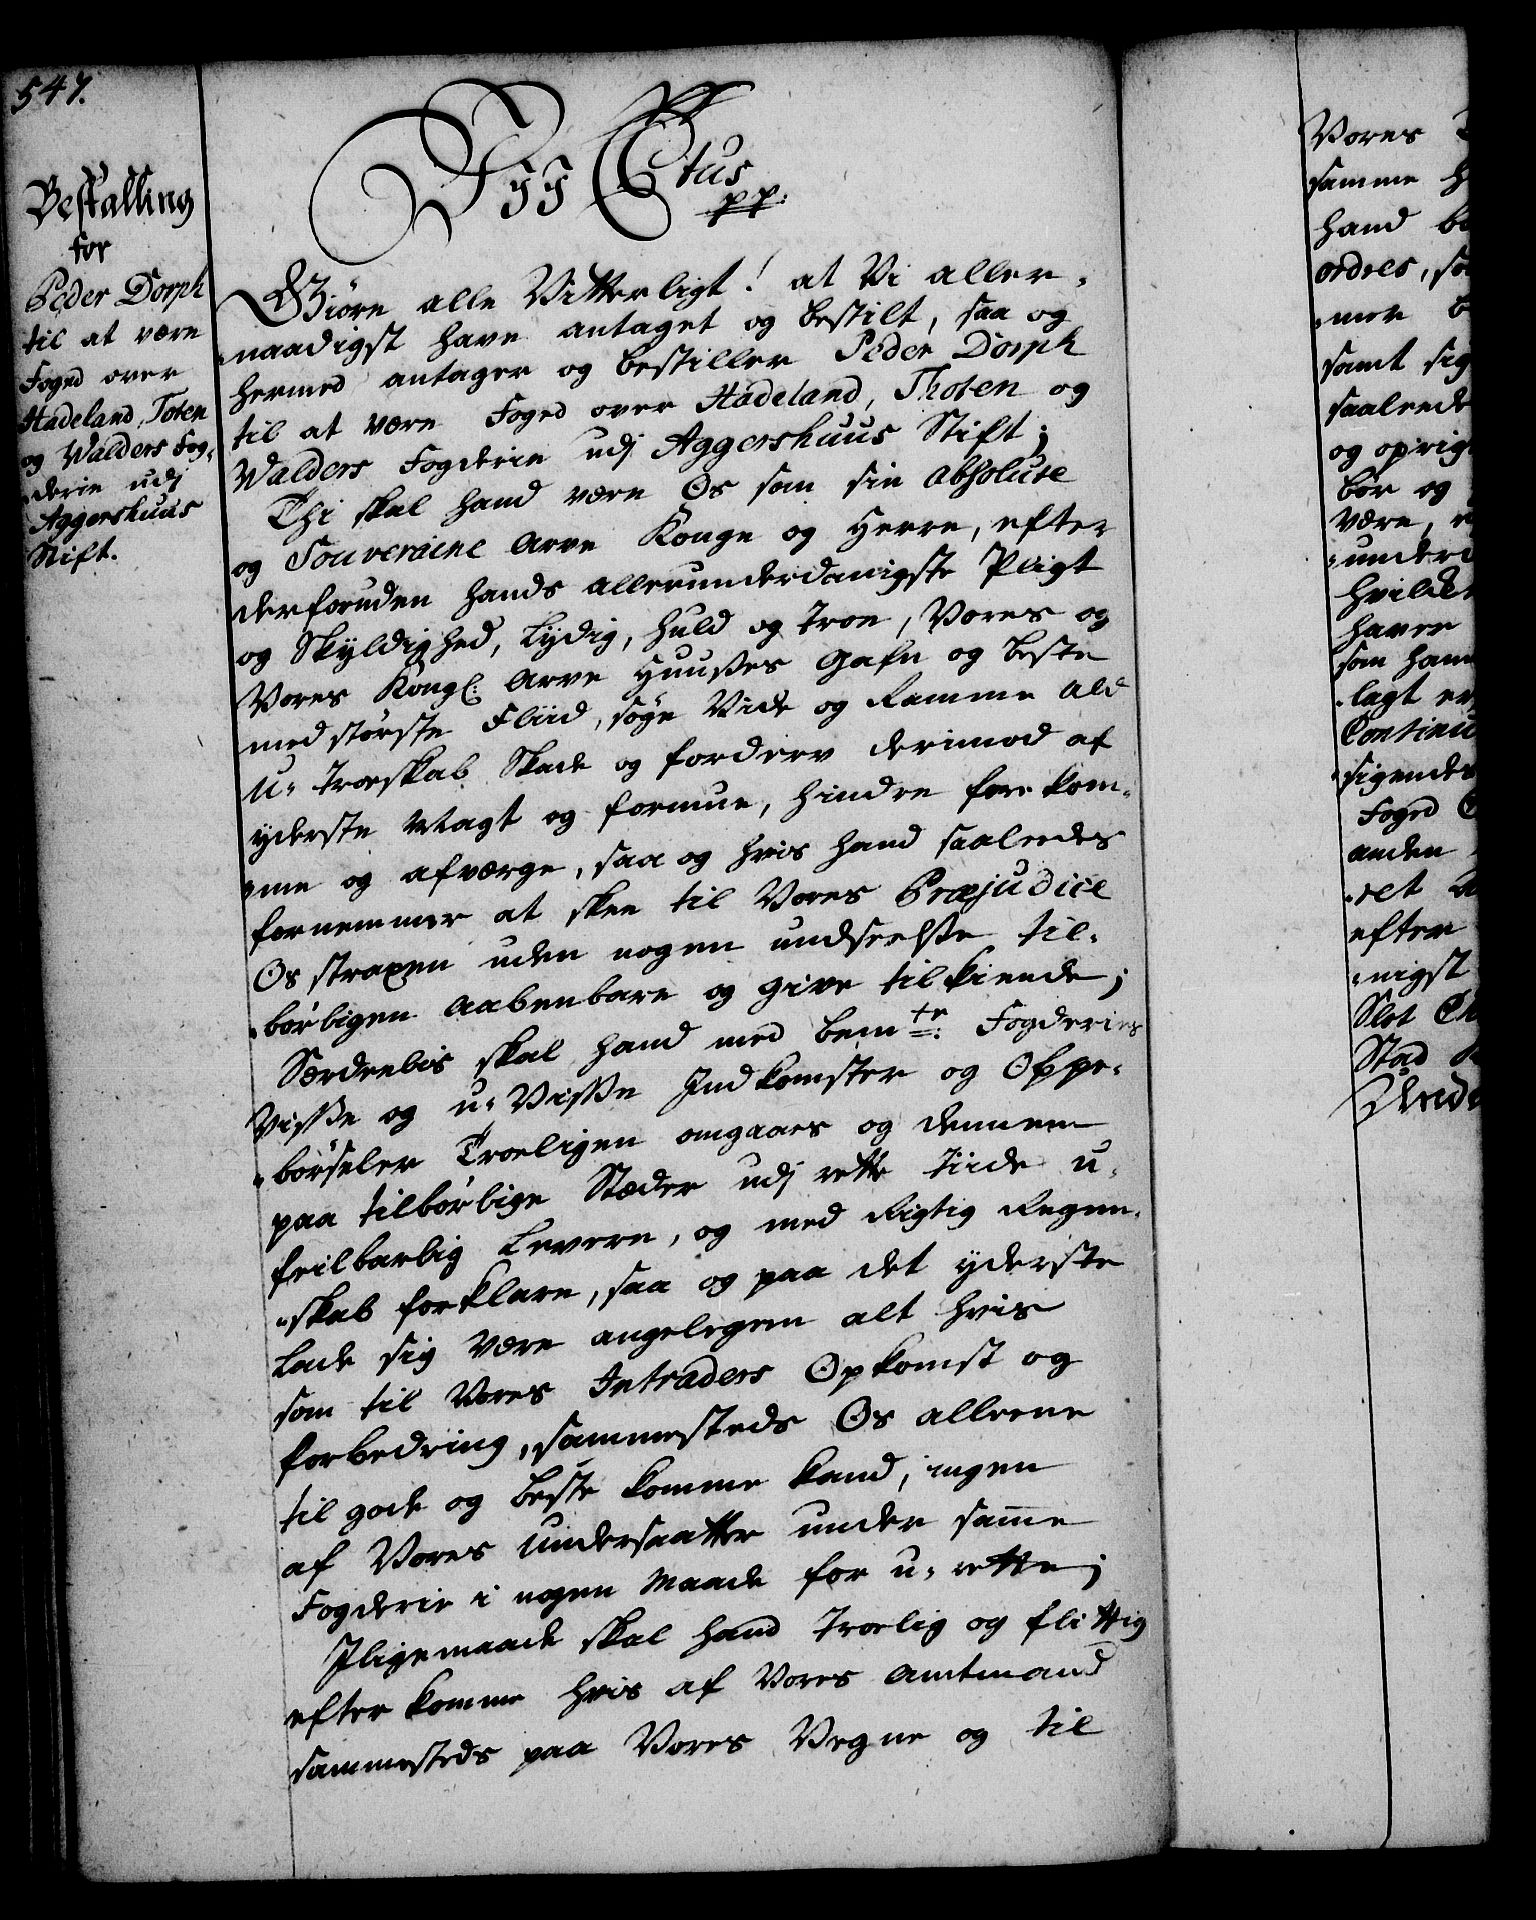 547.
Bestalling
for
Peder Dorph
til at være
Foged over
Hadeland, Toten
og Walders Fog-
derie udj
Aggershuus
Stift.
Vii C6tus
pp.
Giöre alle Vitterligt! at Vi aller-
naadigst have antaget og bestilt, saa og
hermed antager og bestiller Peder Dorph
til at være Foged over Hadeland, Thoten og
Walders Fogderie udj Aggershuus Stift;
Thi skal hand være Os som sin absolute
og Souveraine Arve Konge og Herre, efter
derforuden hands allerunderdanigste Pligt
og Skyldighed, Lydig, huld og troe, Vores og
Vores Kongl: Arve Huusses Gafn og beste
med største Fliid, søge Vide og Ramme ald
U-troeskab Skade og fordærv derimod af
yderste Magt og formue, hindre forekom-
me og afværge, saa og hvis hand saaledes
fornemmer at skee til Vores Præjudice
Os straxen uden nogen undseelse til-
børligen aabenbare og give tilkiende;
Særdeelis skal hand med bemte: Fogderies
Visse og u-Visse Indkomster og Oppe-
børseler Troeligen omgaaes og dennem
paa tilbørlige Stæder udj rette tiide u-
feilbarlig Levere, og med Rigtig Regen-
skab forklare, saa og paa det yderste
Lade sig være angelegen alt hvis
som til Vores Intraders Opkomst og
forbedring, sammesteds Os alleene
til gode og beste komme kand, ingen
af Vores Undersaatter under samme
Fogderie i nogen Maade for u-rette;
Jligemaade skal hand troelig og flittig
efterkomme hvis af Vores Amtmand
sammesteds paa Vores Vegne og til
Vores
samme
hand
ordres,
samt sig
saalede
og oprig
bør og
være,
underd
haver
som han
lagt er
Continu
sigendes
Foged
anden
efter
nigst
Slot
Stad